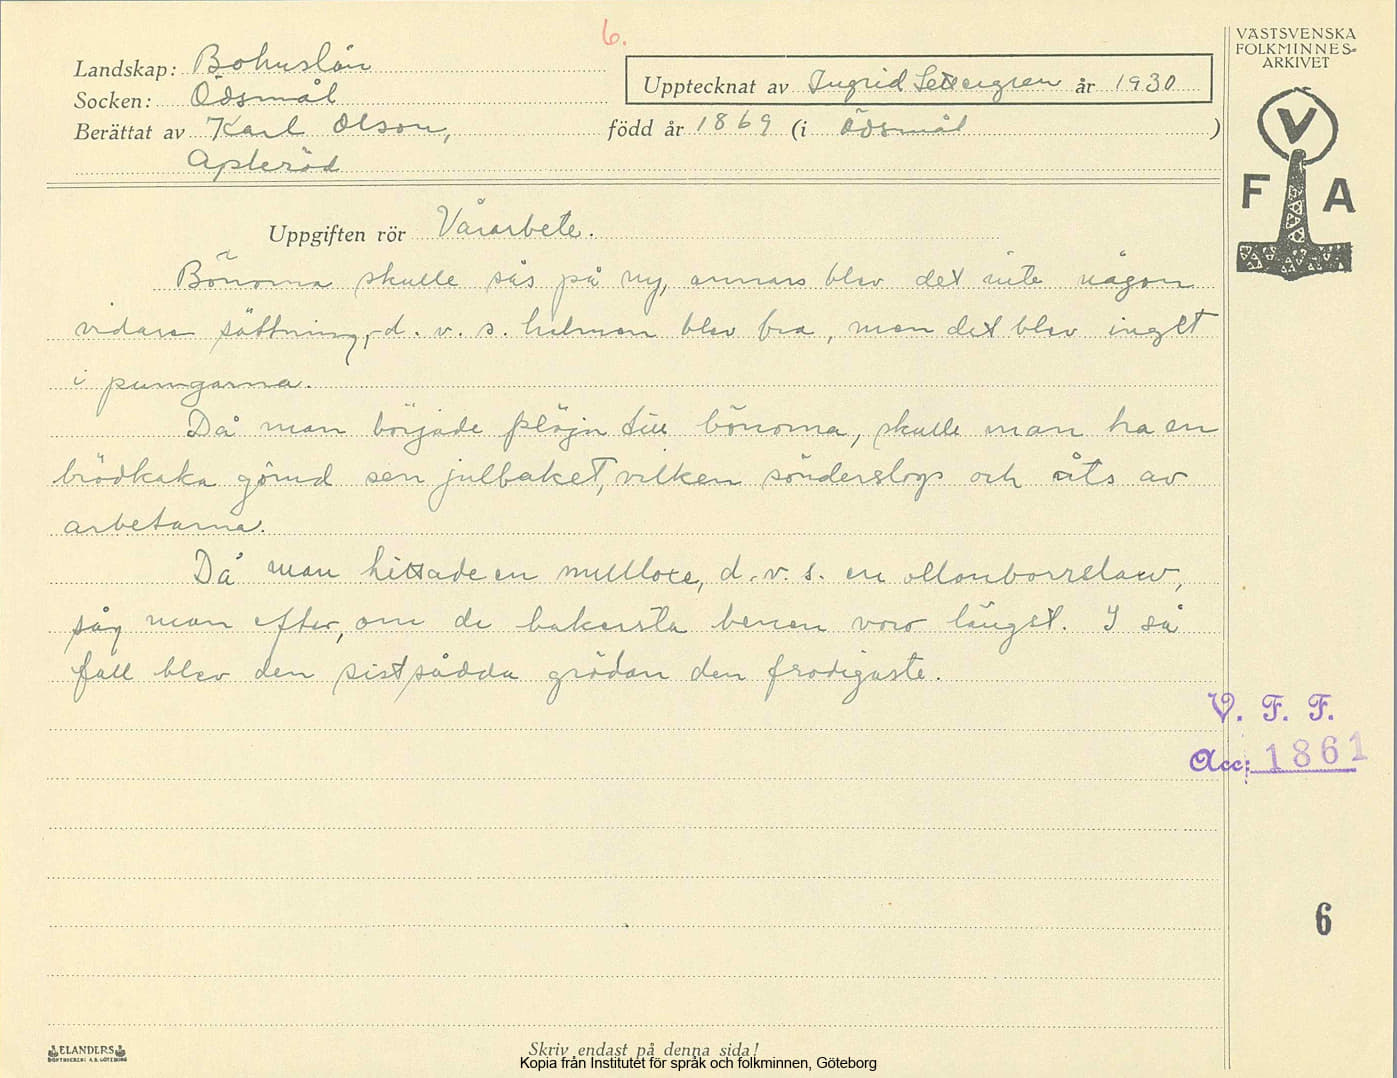 6.
VÄSTSVENSKA
FOLKMINNES-
ARKIVET
Landskap: Bohuslän
Upptecknat av Ingrid Settergren år 1930
Socken: Ödsmål
Berättat av Karl Olson, född år 1869 (i Ödsmål )
Apleröd
V
F A
Uppgiften rör Vårarbete.
Bönorna skulle sås på ny, annars blev det inte någon
vidare sättning, d. v. s. halmen blev bra, men det blev inget
i pungarna.
Då man började plöja till bönorna, skulle man ha en
brödkaka gömd sen julbaket, vilken sönderslogs och åts av
arbetarna.
Då man hittade en mulloxe, d. v. s. en ollonborrelarv,
såg man efter, om de bakersta benen voro längst. I så
fall blev den sist sådda grödan den frodigaste.
V. F. F.
Acc: 1861
6
ELANDERS
BOKTRYCKERI A.B. GÖTEBORG
Skriv endast på denna sida!
Kopia från Institutet för språk och folkminnen, Göteborg